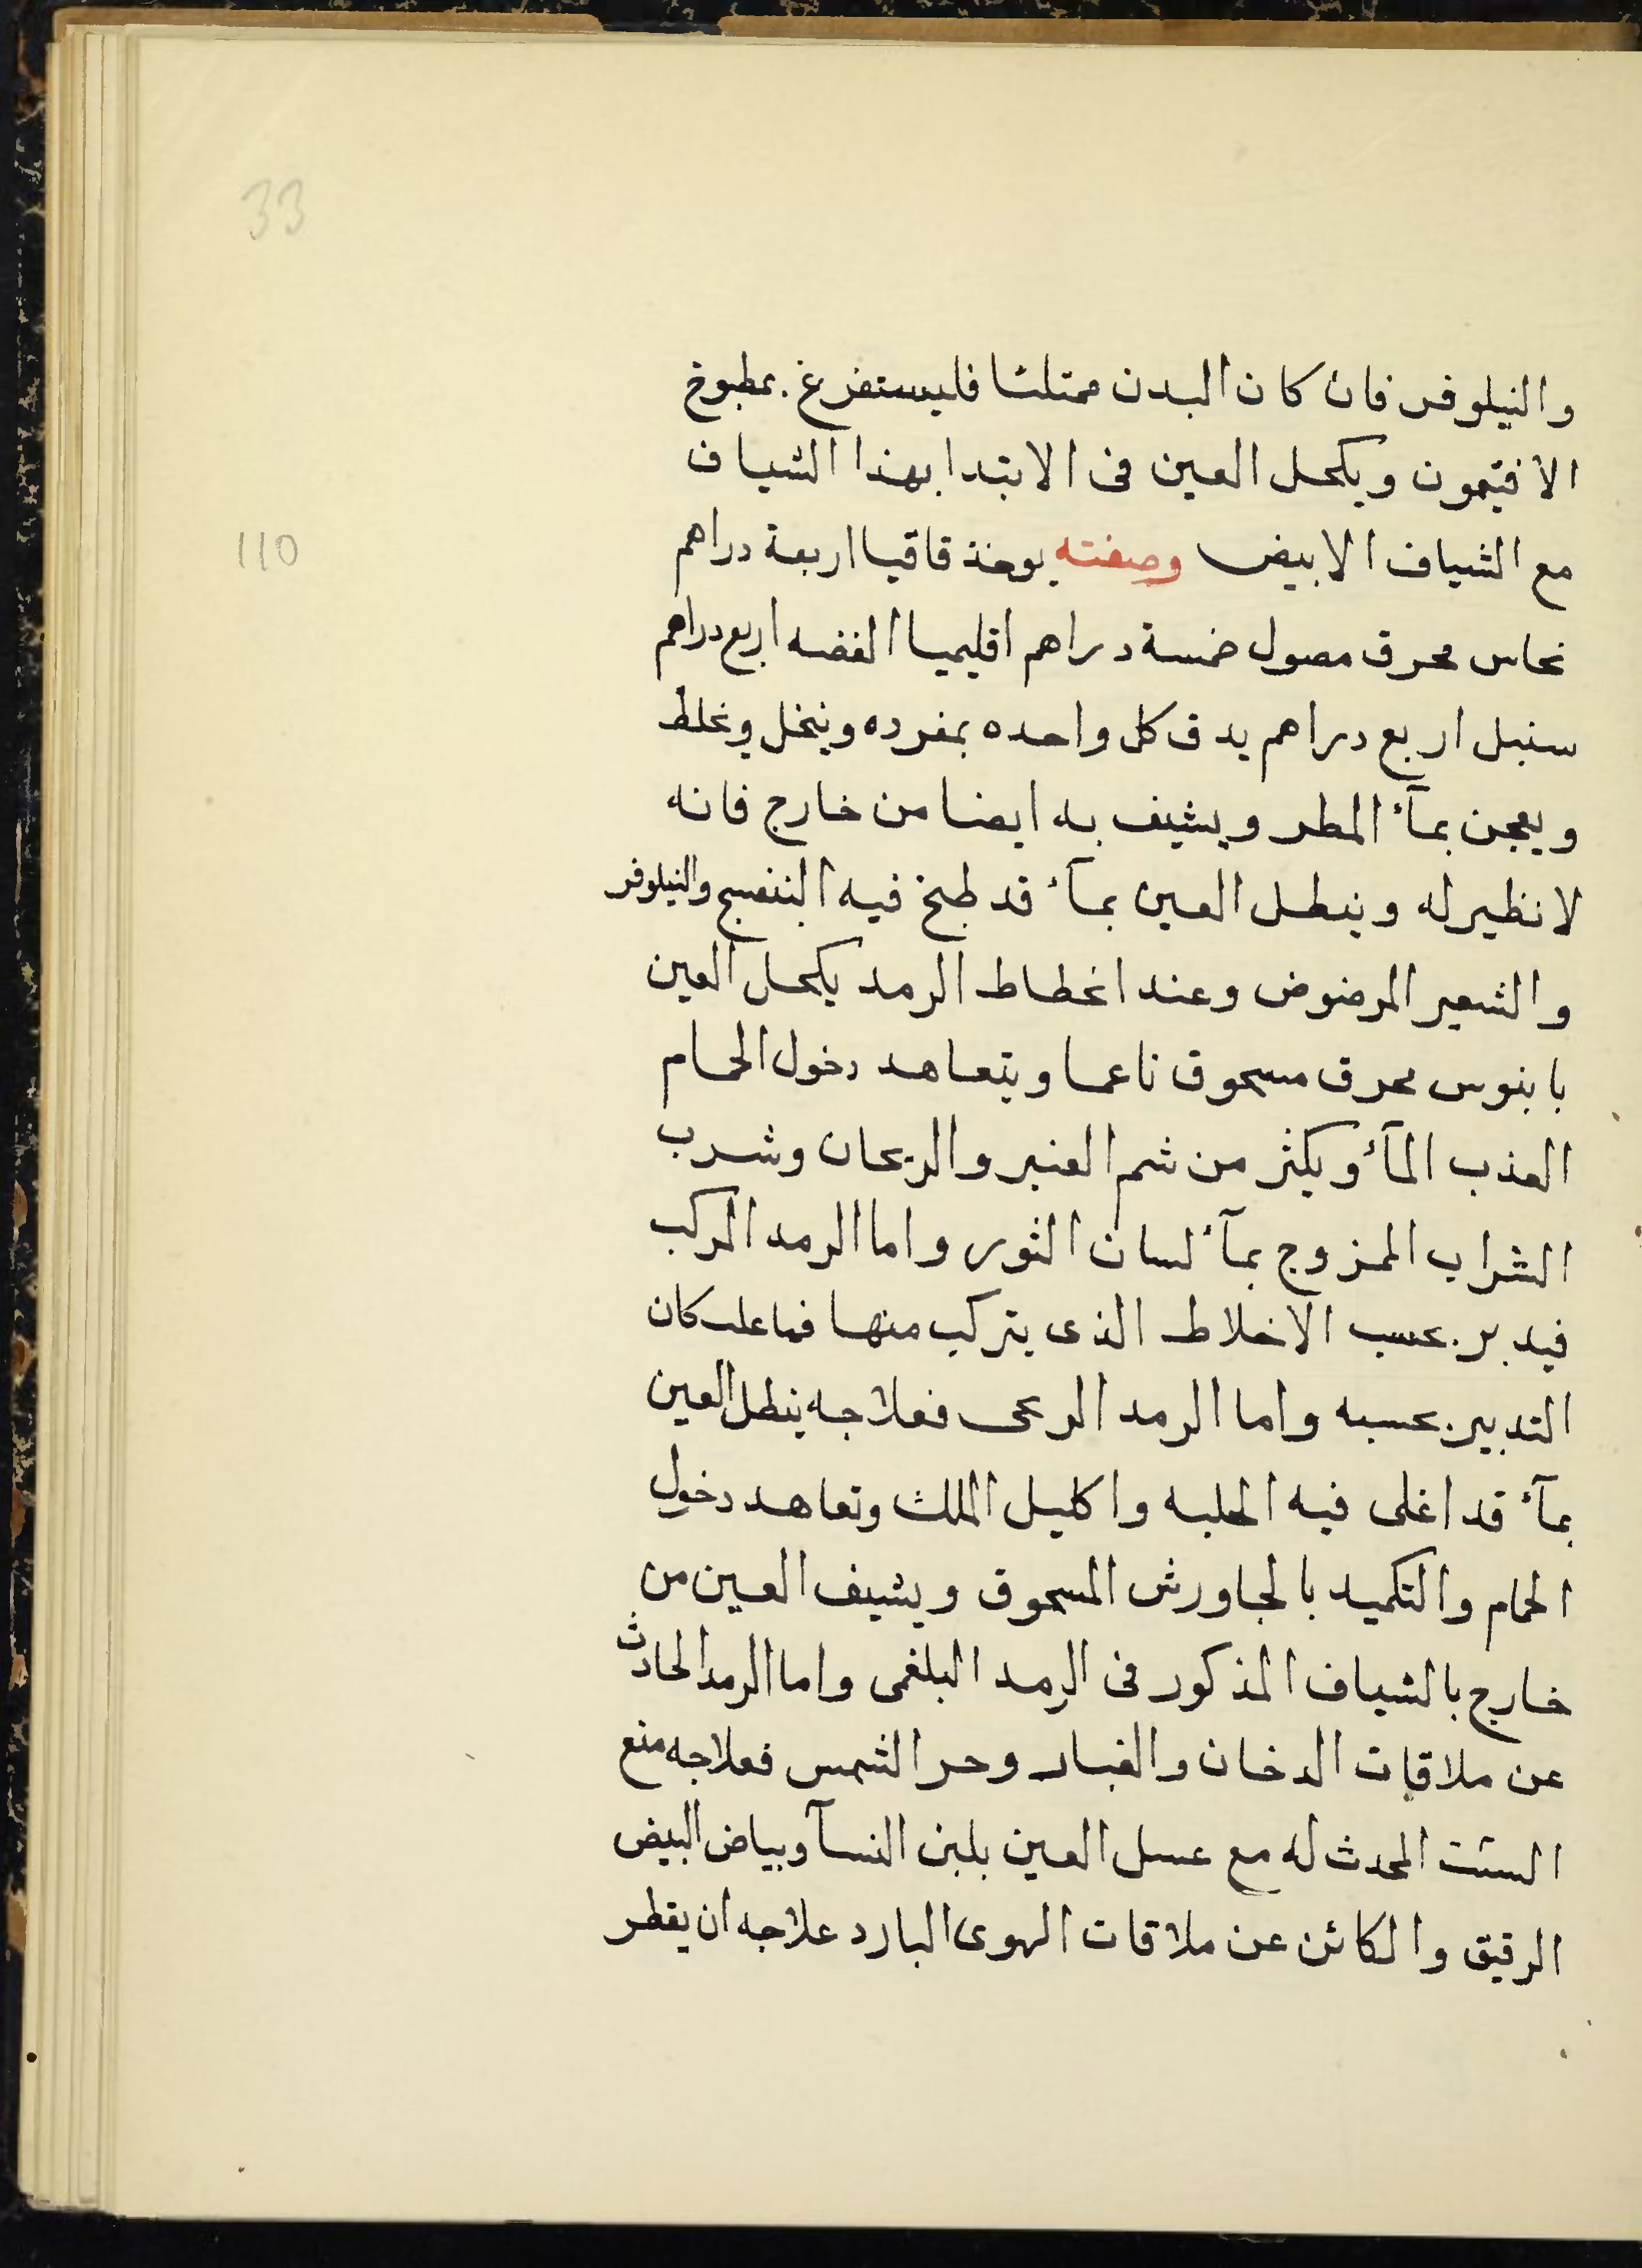 33
والنيلوفر فان كان البدن ممتلئا فليستفرغ بمطبوخ
الافتيمون ويكحل العين فى الابتدا بهذا الشياف
110
مع الشياف الابيض وصفته يوخذ قاقيا اربعة دراهم
نحاس محرق مصول خمسة دراهم اقليميا الفضه اربع دراهم
سنبل اربع دراهم يدق كل واحده بمفرده وينخل ويخلط
ويعجن بمآء المطر ويشيف به ايضا من خارج فانه
لا نظير له وينطل العين بمآء قد طبخ فيه البنفسج والنيلوفر
والشعير المرضوض وعند انحطاط الرمد يكحل العين
بابنوس محرق مسحوق ناعما ويتعاهد دخول الحمام
العذب المآء ويكثر من شم العنبر والريحان وشرب
الشراب الممزوج بمآء لسان الثور واما الرمد المركب
فيدبر بحسب الاخلاط الذى يتركب منها كان
التدبير بحسبه واما الرمد الريحى فعلاجه ينطل العين
بمآء قد اغلى فيه الحلبه واكليل الملك وتعاهد دخول
الحمام والتكميد بالجاورش المسحوق ويشيف العين من
خارج بالشياف المذكور فى الرمد البلغمى واما الرمد الحادث
عن ملاقات الدخان والغبار وحر الشمس فعلاجه منع
المحدث له مع عسل العين بلبن النسآ وبياض البيض
الرقيق والكائن عن ملاقات الهوى البارد علاجه ان يقطر